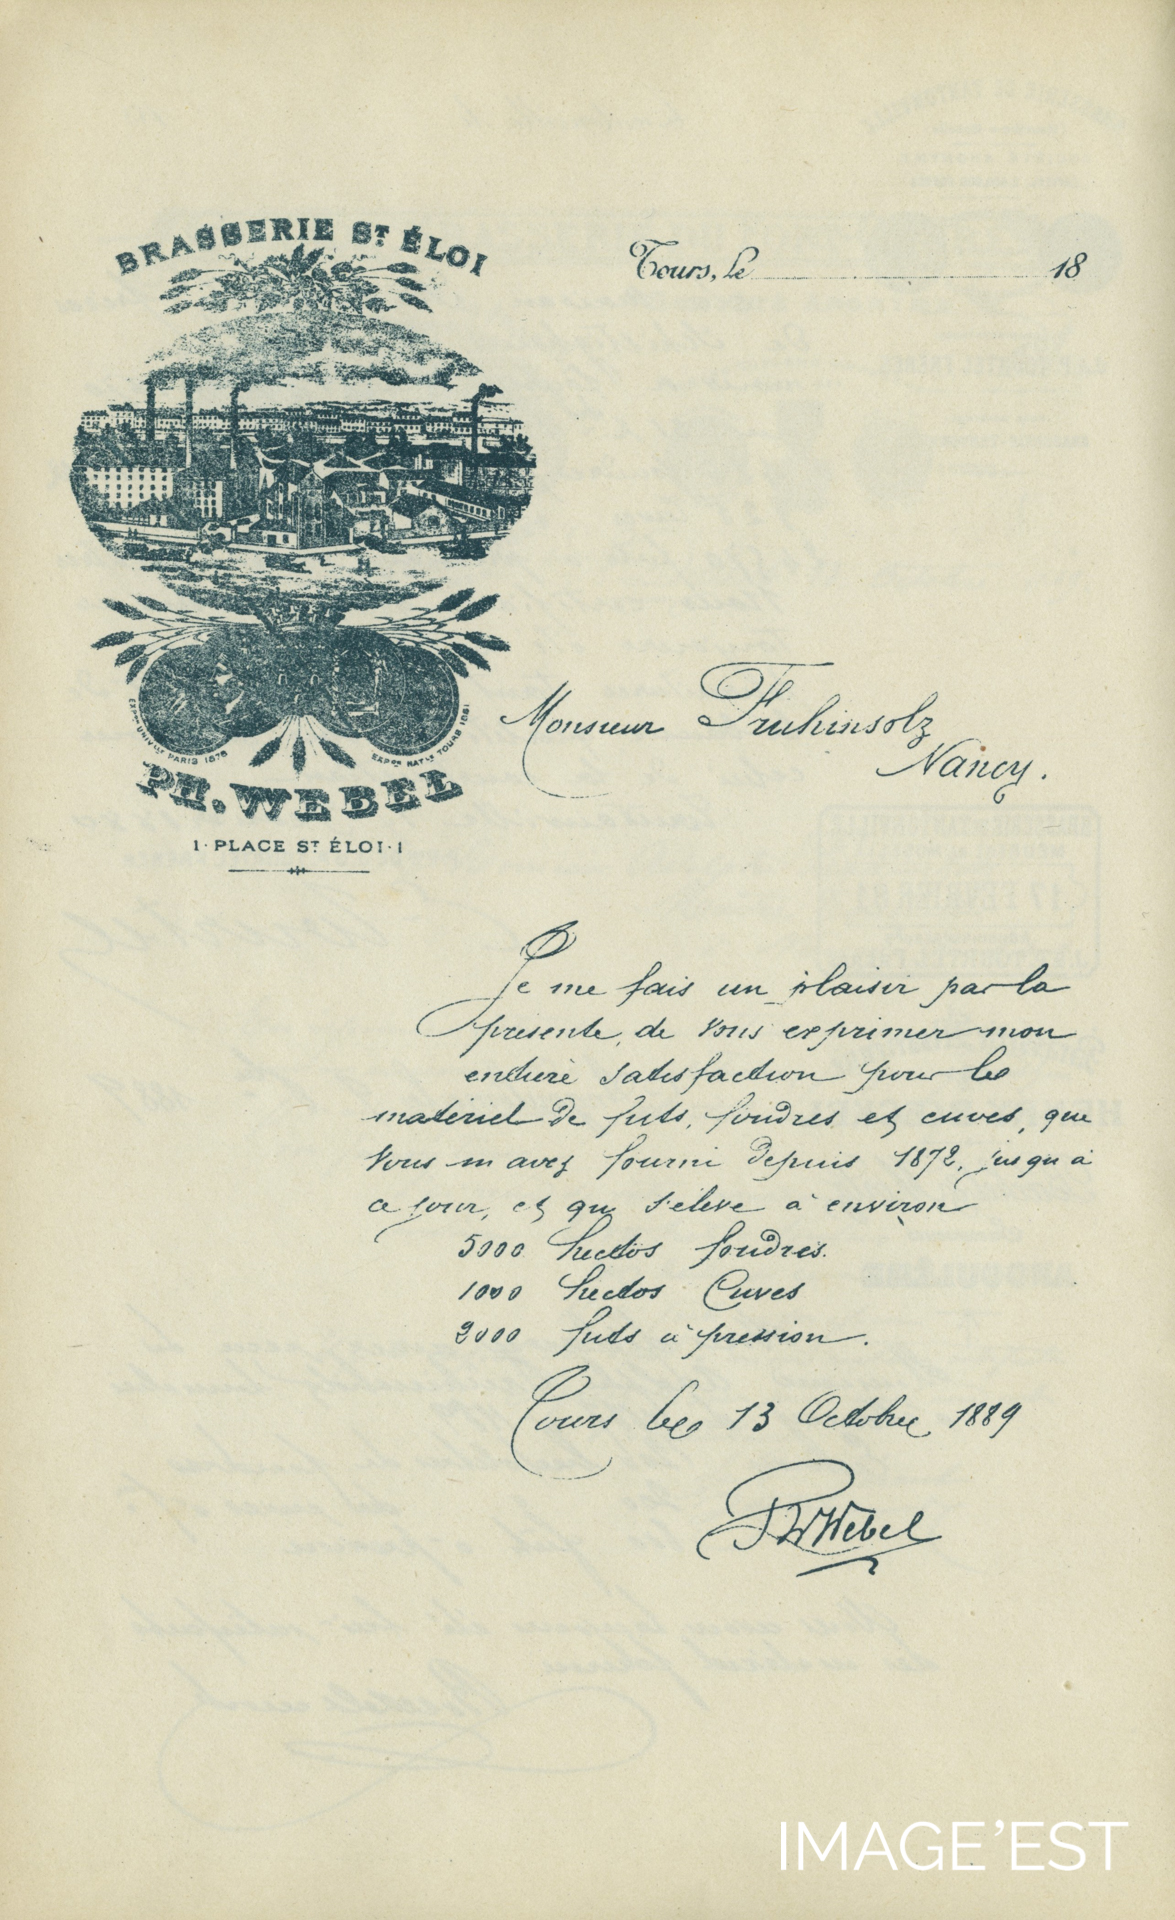 BRASSERIE ST ÉLOI
Tours, le 18
EXPON UNIVLLE PARIS 1878
EXPON NATLE TOURS 1881
PH. WEBEL
1 · PLACE ST ÉLOI · 1
Monsieur Fruhinsolz
Nancy.
Je me fais un plaisir par la
présente, de vous exprimer mon
entière satisfaction pour le
matériel de futs, foudres et cuves, que
vous m'avez fourni depuis 1872, jusqu'à
ce jour, et qui s'élève à environ
5000 hectos foudres.
1000 hectos Cuves
2000 futs à pression.
Tours le 13 Octobre 1889
Ph Webel
IMAGE'EST